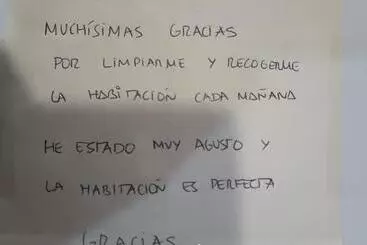 MUCHÍSIMAS GRACIAS
POR LIMPIARME Y RECOGERME
LA HABITACIÓN CADA MAÑANA
HE ESTADO MUY AGUSTO Y
LA HABITACIÓN ES PERFECTA
GRACIAS